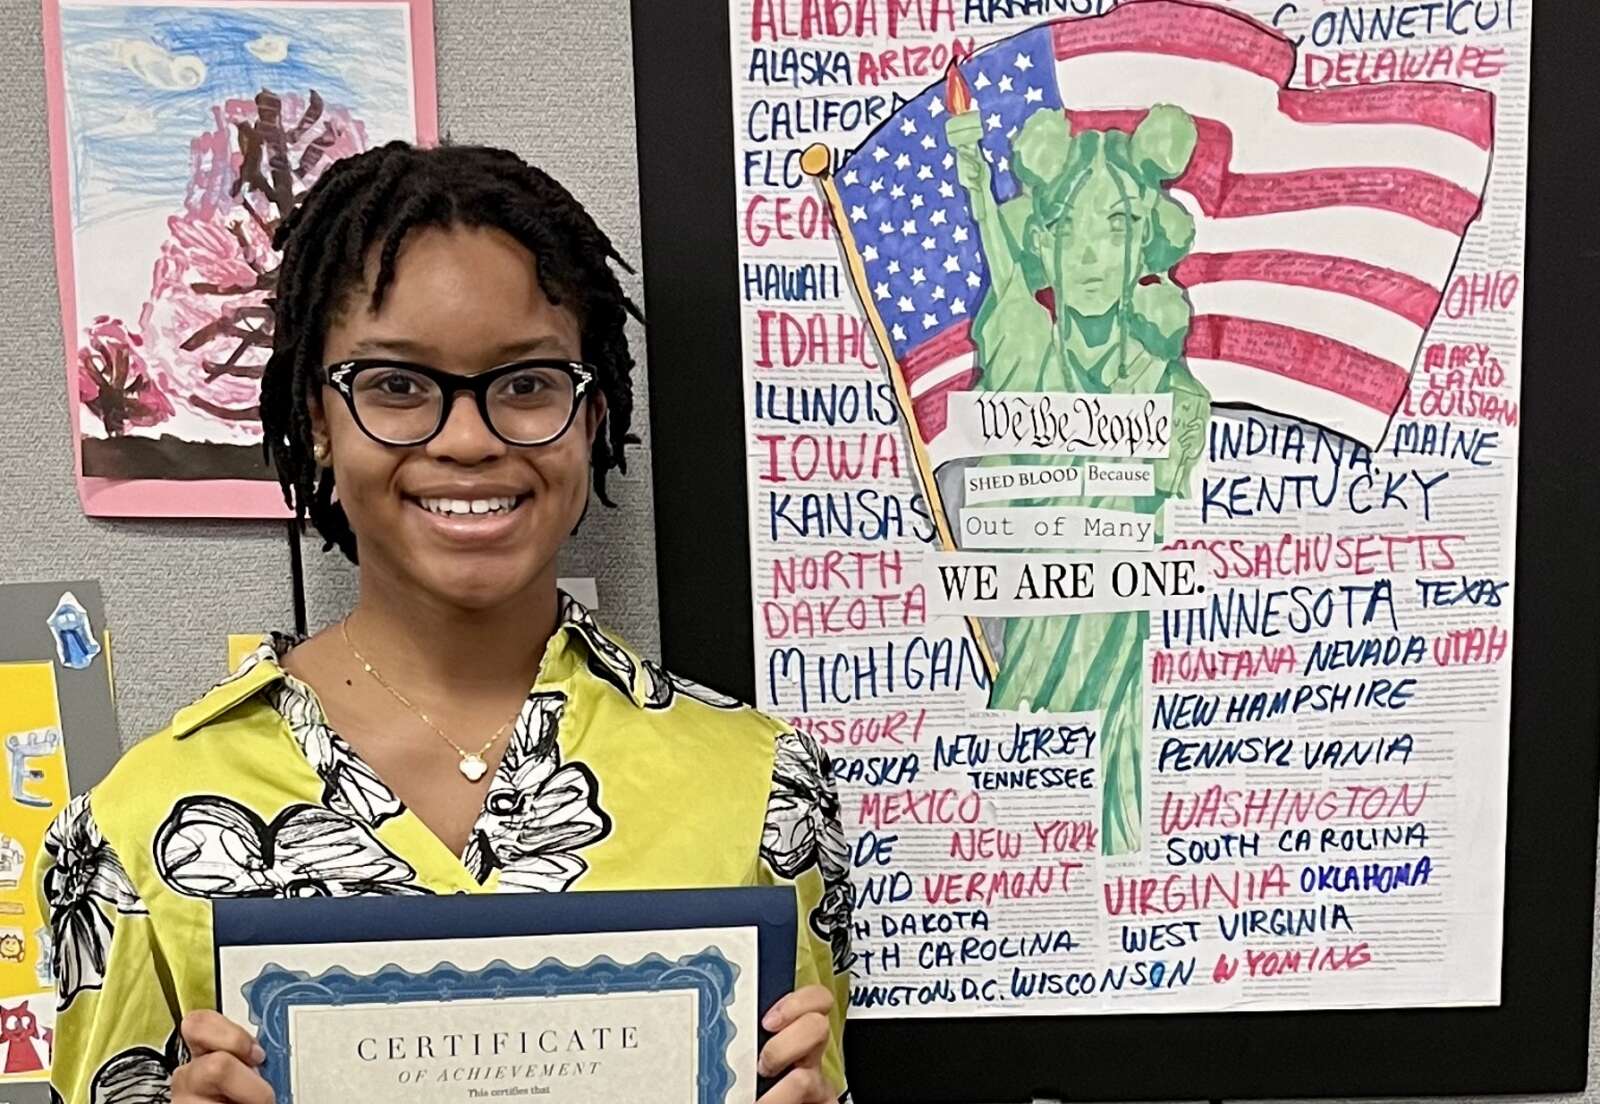 ALABAMA
ALASKA ARIZON
CONNETICUT
DELAWARE
CALIFOR
GEOR
HAWAII
IDAHO
ILLINOIS
IOWA
KANSAS
NORTH
DAKOTA
MICHIGAN
OHIO
MARY
LAND
LOUISIANA
We the People
SHED BLOOD Because
Out of Many
WE ARE ONE.
INDIANA. MAINE
KENTUCKY
MASSACHUSETTS
MINNESOTA TEXAS
MONTANA NEVADA UTAH
NEW HAMPSHIRE
PENNSYLVANIA
NEW JERSEY
TENNESSEE
MEXICO
NEW YORK
VERMONT
WASHINGTON
SOUTH CAROLINA
VIRGINIA OKLAHOMA
DAKOTA
CAROLINA
WEST VIRGINIA
D.C. WISCONSON WYOMING
E
CERTIFICATE
OF ACHIEVEMENT
This certifies that